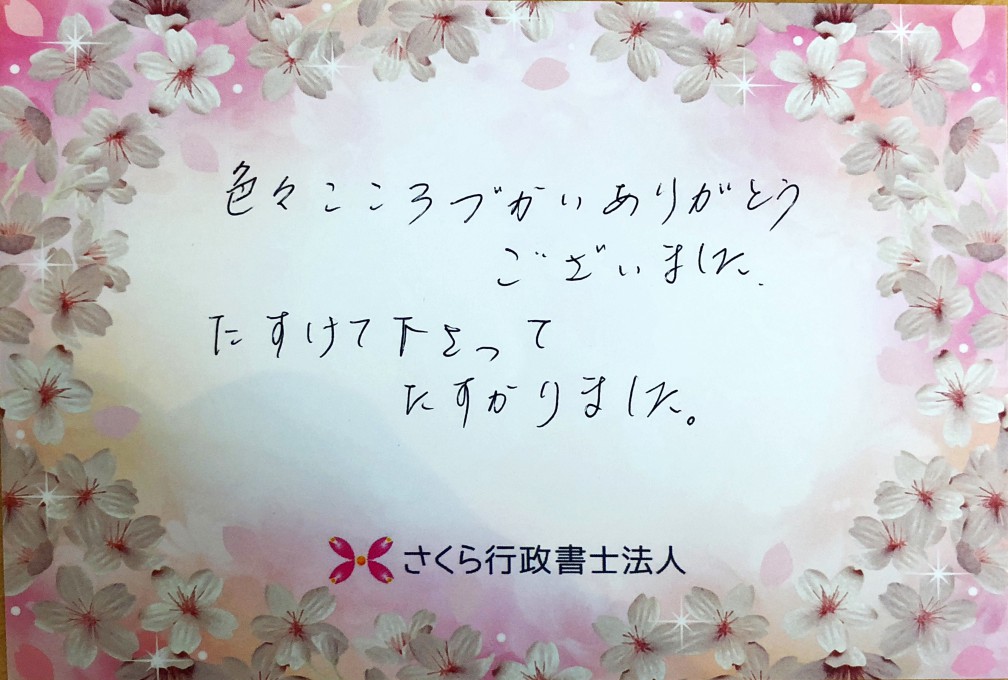 色々こころづかいありがとう
ございました.
たすけて下さって
たすかりました。
さくら行政書士法人